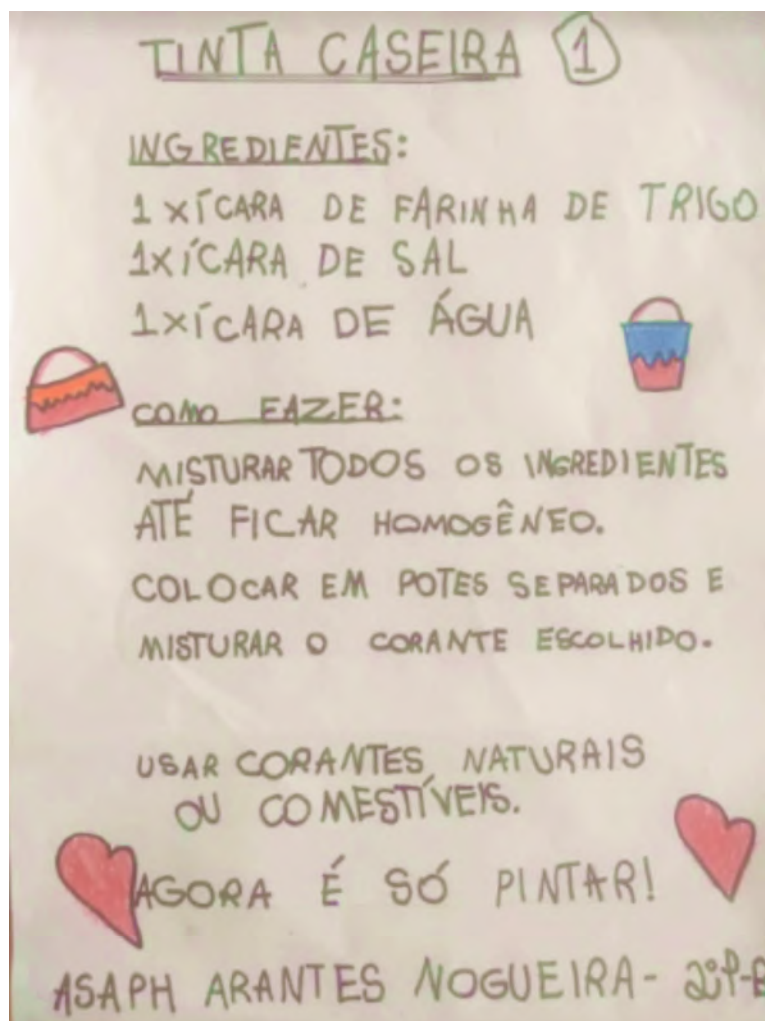 TINTA CASEIRA 1
INGREDIENTES:
1 XÍCARA DE FARINHA DE TRIGO
1XÍCARA DE SAL
1XÍCARA DE ÁGUA
COMO FAZER:
MISTURAR TODOS OS INGREDIENTES
ATÉ FICAR HOMOGÊNEO.
COLOCAR EM POTES SEPARADOS E
MISTURAR O CORANTE ESCOLHIDO.
USAR CORANTES NATURAIS
OU COMESTÍVEIS.
AGORA É SÓ PINTAR!
ASAPH ARANTES NOGUEIRA-